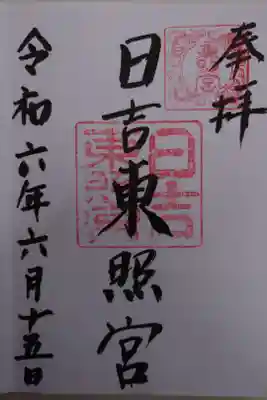 奉拝
日吉東照宮
令和六年六月十五日
日吉東照宮